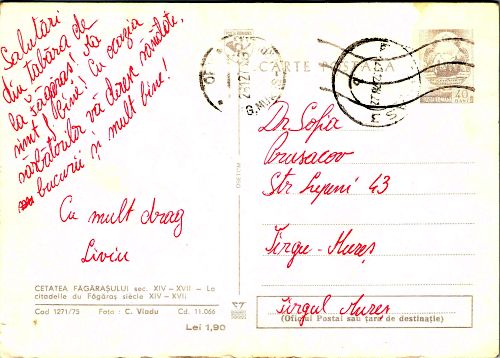 Salutări
din tabăra de
la Făgăraș! Aa
sînt! Bine! Cu ocazia
sărbătorilor vă doresc sănătate,
bucurii și mult bine!
Cu mult drag
Liviu
CETATEA FĂGĂRAȘULUI sec. XIV – XVII – La
citadelle du Făgăraș siècle XIV – XVII
Cod 1271/75 Foto : C. Vladu Cd. 11.066
Lei 1,90
CARTE POȘTALĂ
40
Dr. Sofia
Prusacov
Str Lupeni 43
Tîrgu-Mureș
Tîrgul Mureș
(Oficiul Poștal sau țara de destinație)